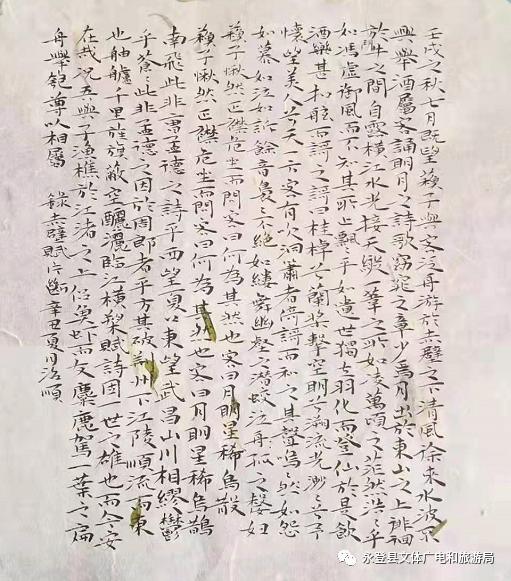 壬戌之秋七月既望蘓子與客泛舟游於赤壁之下清風徐来水波不
興舉酒屬客誦明月之詩歌窈窕之章少焉月出於東山之上徘徊
於斗牛之間白露横江水光接天縱一葦之所如凌萬頃之茫然浩浩乎
如馮虚御風而不知其所止飄飄乎如遺世獨立羽化而登仙於是飲
酒樂甚扣舷而謌之謌曰桂棹兮蘭槳擊空明兮溯流光渺渺兮予
懷望美人兮天一方客有吹洞簫者倚謌而和之其聲嗚嗚然如怨
如慕如泣如訴餘音裊裊不絶如縷舞幽壑之潛蛟泣孤舟之嫠婦
蘓子愀然正襟危坐而問客曰何為其然也客曰月明星稀烏鵲
蘓子愀然正襟危坐而問客曰何為其然也客曰月明星稀烏鵲
南飛此非曹孟德之詩乎西望夏口東望武昌山川相繆鬱
乎蒼蒼此非孟德之困於周郎者乎方其破荆州下江陵順流而東
也舳艫千里旌旗蔽空釃酒臨江横槊賦詩固一世之雄也而今安
在哉况吾與子漁樵於江渚之上侣魚蝦而友麋鹿駕一葉之扁
舟舉匏尊以相屬 錄赤壁賦片斷辛丑夏月
永登县文体广电和旅游局